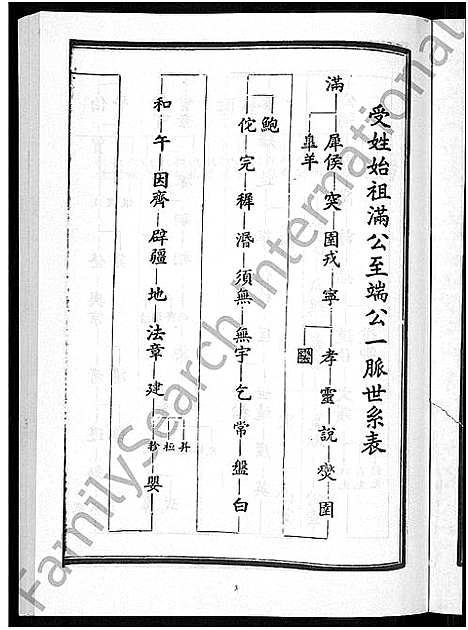 受姓始祖滿公至端公一脈世系表
滿
犀侯 突 圉戎 寧 孝 靈 說 燮 圉
皐羊
鮑
佗 完 穉 湣 須無 無宇 乞 常 盤 白
和 午 因齊 辟疆 地 法章 建 嬰
昇
桓
軫
3
FamilySearch International